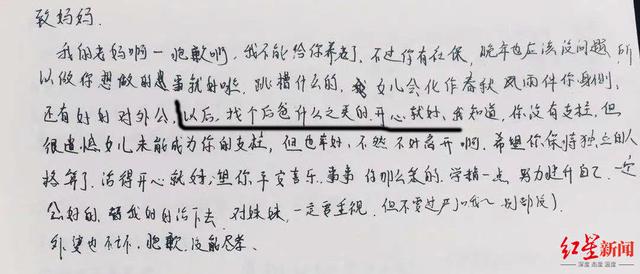 致妈妈.
我的老妈啊一 抱歉啊, 我不能给你养老了, 不过你有社保, 晚年也应该没问题, 所
以做你想做的 事就好啦, 跳槽什么的, 女儿会化作春秋风雨伴你身侧,
还有好的对外公, 以后, 找个后爸什么之类的, 开心就好, 我知道, 你没有支柱, 但
很遗憾女儿未能成为你的支柱, 但也幸好, 不然不好离开啊. 希望你保持独立的人
格算了, 活得开心就好, 望你平安喜乐, 事事 学精一点, 努力提升自己, 一定
会好的, 替我好好活下去, 对妹妹, 一定要重视, 但不要过严
外婆也不坏, 抱歉, 没能尽孝.
红星新闻
深度 态度 温度